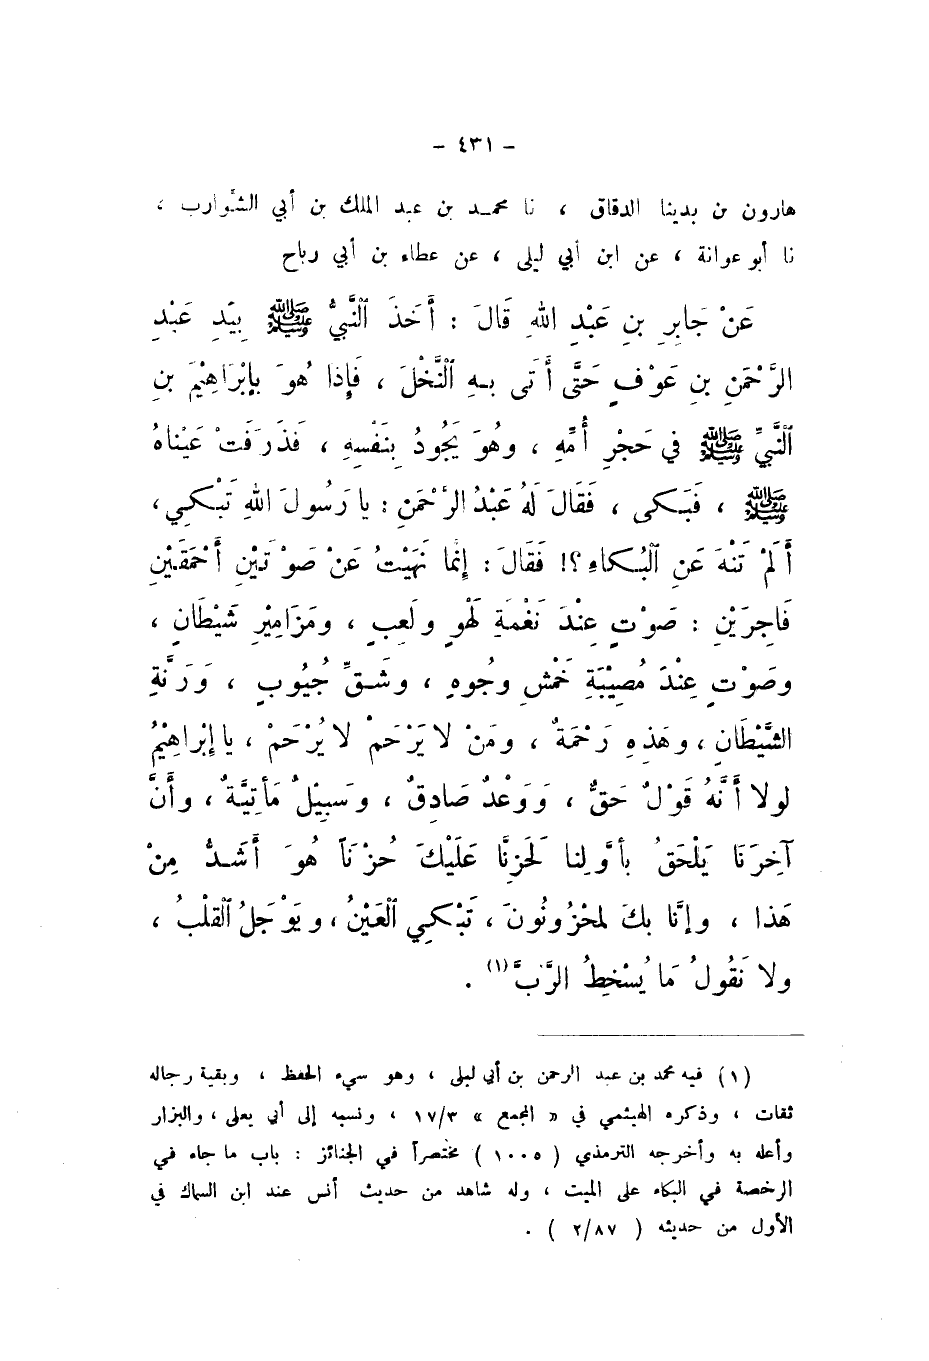 - ٤٣١ -
هارون بن بدينا الدقاق ، نا محمد بن عبد الملك بن أبي الشوارب ،
نا أبو عوانة ، عن ابن أبي ليلى ، عن عطاء بن أبي رباح
عَنْ جَابِرِ بنِ عَبْدِ اللهِ قَالَ : أَخَذَ ٱلنَّبيُّ ﷺ بِيَدِ عَبْدِ
الرَّحْمَنِ بنِ عَوْفٍ حَتَّى أَتَى بهِ ٱلنَّخْلَ ، فَإِذا هُوَ بِإِبْرَاهِيْمَ بنِ
ٱلنَّبيِّ ﷺ في حَجْرِ أُمِّهِ ، وهُوَ يَجُودُ بِنَفْسِهِ ، فَذَرَفَتْ عَيْناهُ
ﷺ ، فَبَكى ، فَقَالَ لَهُ عَبْدُ الرَّحْمَنِ : يا رَسُولَ اللهِ تَبْكي ،
أَلَمْ تَنْهَ عَنِ ٱلبُكاءِ ؟! فَقَالَ : إنَّما نَهَيْتُ عَنْ صَوْتَيْنِ أَحْمَقَيْنِ
فَاجِرَيْنِ : صَوْتٍ عِنْدَ نَغْمَةِ لَهْوٍ ولَعِبٍ ، ومَزَامِيْرِ شَيْطَانٍ ،
وصَوْتٍ عِنْدَ مُصِيْبَةِ خَمْشِ وجُوهٍ ، وشَقِّ جُيُوبٍ ، وَرَنَّةِ
الشَّيْطَانِ ، وهَذِهِ رَحْمَةٌ ، ومَنْ لا يَرْحَمْ لا يُرْحَمْ ، يا إِبْراهِيْمُ
لولا أَنَّهُ قَوْلٌ حَقٌّ ، وَوَعْدٌ صَادِقٌ ، وسَبِيْلٌ مَأتِيَّةٌ ، وأَنَّ
آخِرَنَا يَلْحَقُ بأَوَّلِنا لَحَزِنَّا عَلَيْكَ حُزْناً هُوَ أَشَدُّ مِنْ
هَذا ، وإنَّا بكَ لمَحْزُونُونَ ، تَبْكي ٱلعَيْنُ ، ويَوْجَلُ ٱلقَلْبُ ،
ولا نَقُولُ مَا يُسْخِطُ الرَّبَّ (١) .
(١) فيه محمد بن عبد الرحمن بن أبي ليلى ، وهو سيء الحفظ ، وبقية رجاله
ثقات ، وذكره الهيثمي في « المجمع » ١٧/٣ ، ونسبه إلى أبي يعلى ، والبزار
وأعله به وأخرجه الترمذي ( ١٠٠٥ ) مختصراً في الجنائز : باب ما جاء في
الرخصة في البكاء على الميت ، وله شاهد من حديث أنس عند ابن السماك في
الأول من حديثه ( ٢/٨٧ ) .